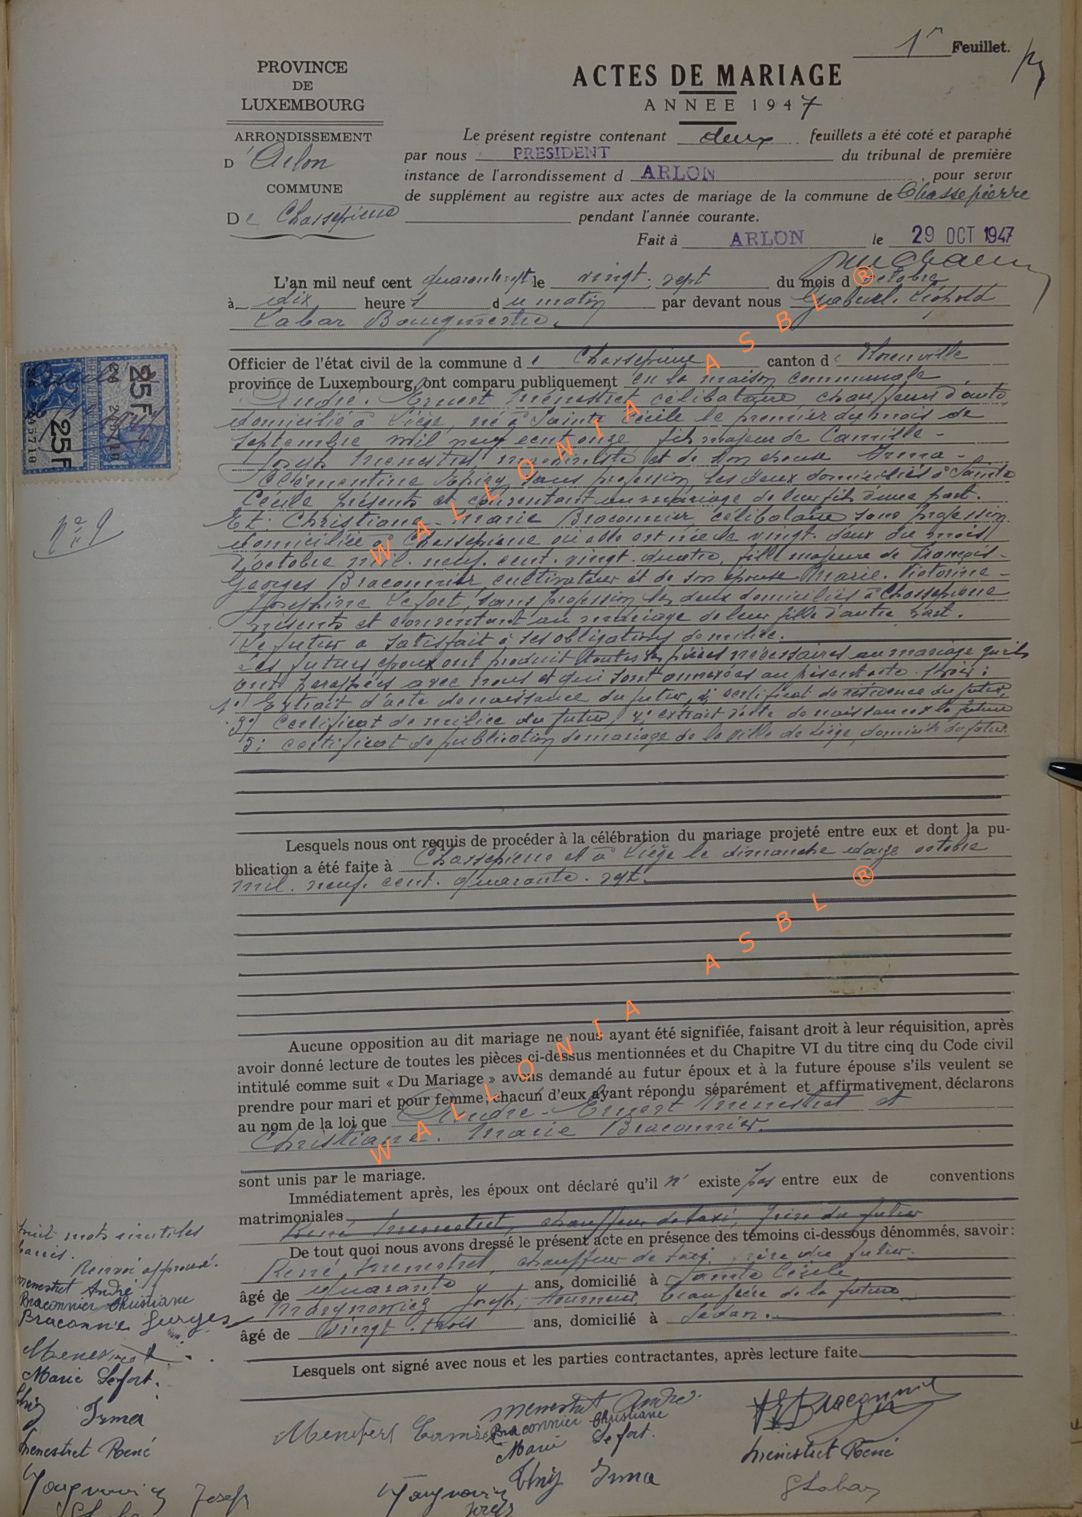 1r Feuillet.
PROVINCE
DE
LUXEMBOURG
ARRONDISSEMENT
D'Arlon
COMMUNE
De Chassepierre
ACTES DE MARIAGE
ANNEE 1947
Le présent registre contenant deux feuillets a été coté et paraphé
par nous PRESIDENT du tribunal de première
instance de l'arrondissement d ARLON pour servir
de supplément au registre aux actes de mariage de la commune de Chassepierre
pendant l'année courante.
Fait à ARLON le 29 OCT 1947
L'an mil neuf cent quarante sept le vingt-sept du mois d'octobre
à dix heures du matin par devant nous Gabriel Léopold
Labar Bourgmestre.
Officier de l'état civil de la commune de Chassepierre canton de Florenville
province de Luxembourg, ont comparu publiquement en la maison communale
André-Ernest Menestret célibataire, chauffeur d'auto
domicilié à Liège, né à Sainte Cécile le premier du mois de
Septembre mil neuf cent onze fils majeur de Camille-
Joseph Menestret, et de son épouse Irma-
Clémentine sans profession les deux domiciliés à Sainte
Cécile présents et consentant au mariage de leur fils d'une part.
Et: Christiane-Marie Braconnier célibataire sans profession
domiciliée à Chassepierre où elle est née le vingt-deux du mois
d'octobre mil-neuf-cent-vingt-quatre, fille majeure de François-
Georges Braconnier cultivateur et de son épouse Marie-Victorine-
Joséphine Lefort, sans profession les deux domiciliés à Chassepierre
présents et consentant au mariage de leur fille d'autre part.
Le futur a satisfait à ses obligations de milice.
Les futurs époux ont produit toutes les pièces nécessaires au mariage qu'ils
ont paraphées avec nous et qui sont annexées au présent acte savoir:
1° Extrait d'acte de naissance du futur, 2° certificat de résidence du futur
3° Certificat de milice du futur, 4° extrait d'acte de naissance de la future
5° certificat de publication de mariage de la ville de Liège, domicile du futur.
25F
25F
N° 9
Lesquels nous ont requis de procéder à la célébration du mariage projeté entre eux et dont la pu-
blication a été faite à Chassepierre et à Liège le dimanche douze octobre
mil-neuf-cent-quarante-sept.
Aucune opposition au dit mariage ne nous ayant été signifiée, faisant droit à leur réquisition, après
avoir donné lecture de toutes les pièces ci-dessus mentionnées et du Chapitre VI du titre cinq du Code civil
intitulé comme suit « Du Mariage » avons demandé au futur époux et à la future épouse s'ils veulent se
prendre pour mari et pour femme, chacun d'eux ayant répondu séparément et affirmativement, déclarons
au nom de la loi que André-Ernest Menestret et
Christiane-Marie Braconnier.
sont unis par le mariage.
Immédiatement après, les époux ont déclaré qu'il n'existe pas entre eux de conventions
matrimoniales René Menestret, chauffeur de taxi, frère du futur
De tout quoi nous avons dressé le présent acte en présence des témoins ci-dessous dénommés, savoir:
René Menestret, chauffeur de taxi, frère du futur.
âgé de quarante ans, domicilié à Sainte Cécile
Joseph, tourneur, beau frère de la future
âgé de vingt-trois ans, domicilié à Sedan.
Lesquels ont signé avec nous et les parties contractantes, après lecture faite
huit mots inutiles
barrés.
Renvoi approuvé.
Menestret André
Braconnier Christiane
Braconnier Georges
Menestret
Marie Lefort.
Irma
Menestret René
Joseph
GLabar
Menestret Camille
Menestret André.
Braconnier Christiane
Marie Lefort.
Irma
Joseph
Braconnier
Menestret René
GLabar
WALLONIA ASBL ®
WALLONIA ASBL ®